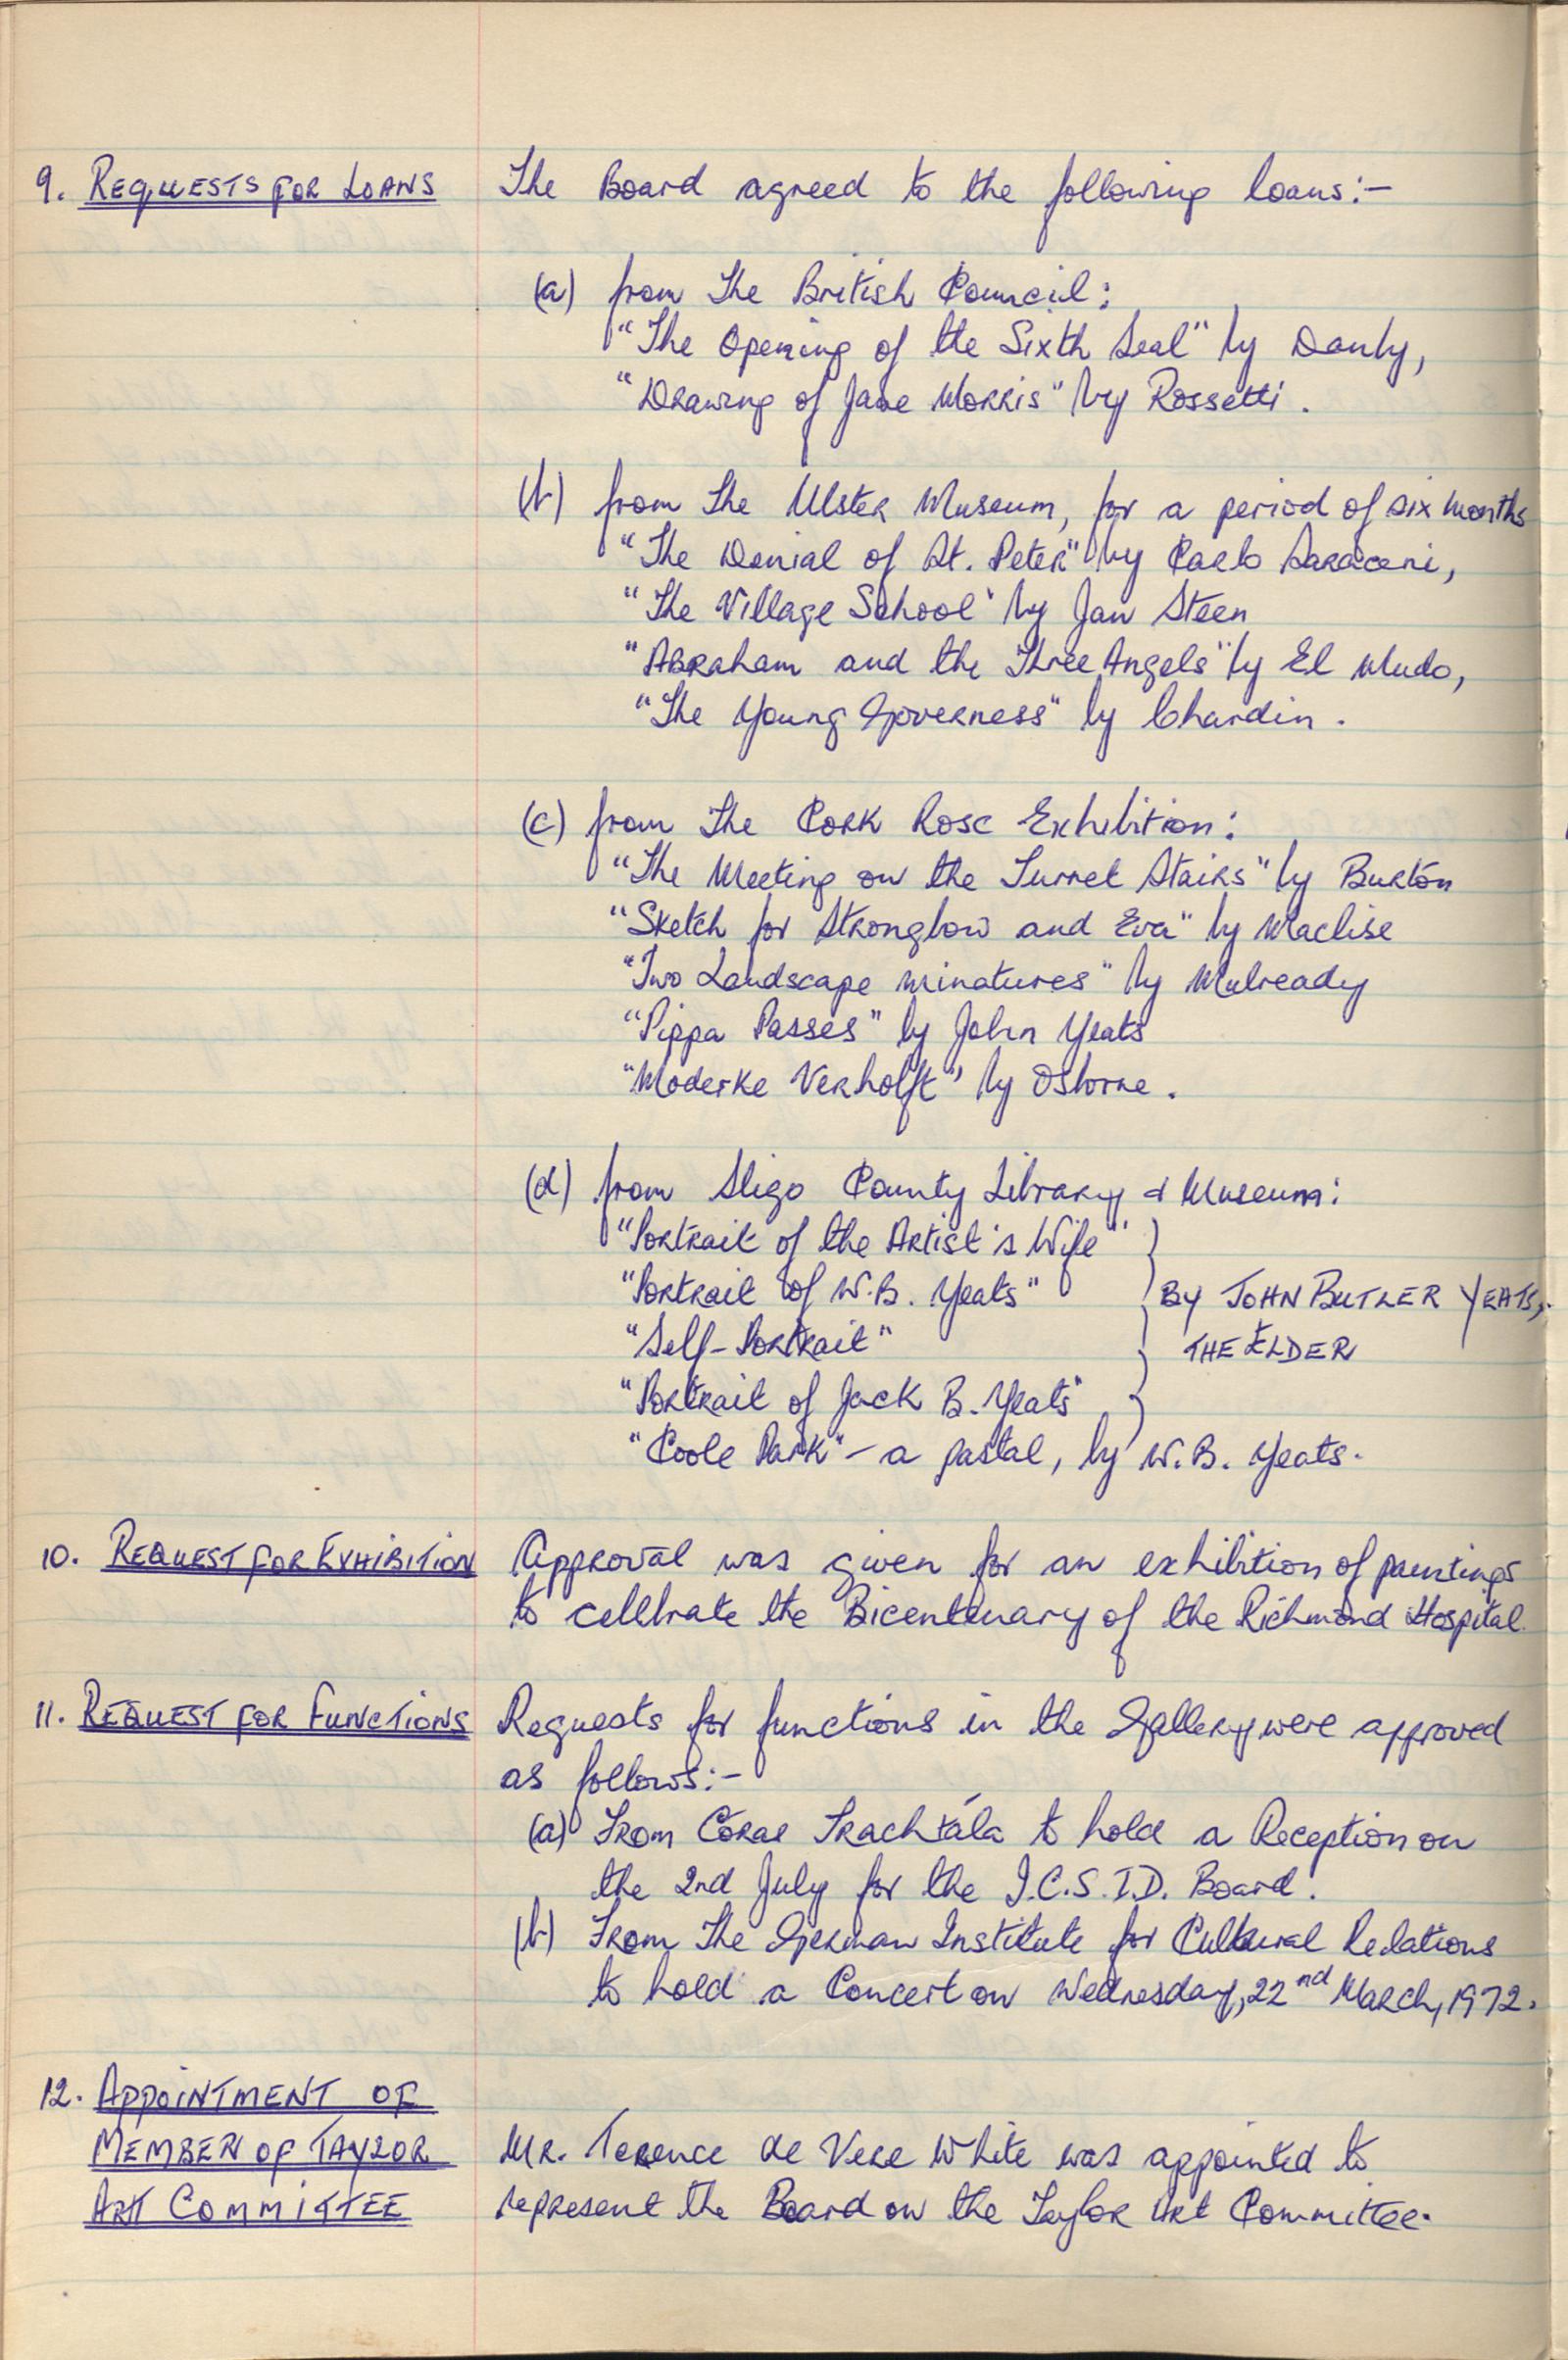 9. REQUESTS FOR LOANS The Board agreed to the following loans:-
(a) from The British Council:
"The Opening of the Sixth Seal" by Danby,
"Drawing of Jane Morris" by Rossetti.
(b) from The Ulster Museum, for a period of six months
"The Denial of St. Peter" by Carlo Saraceni,
"The Village School" by Jan Steen
"Abraham and the Three Angels" by El Mudo,
"The Young Governess" by Chardin.
(c) from The Cork Rosc Exhibition:
"The Meeting on the Turret Stairs" by Burton
"Sketch for Strongbow and Eva" by Maclise
"Two Landscape minatures" by Mulready
"Pippa Passes" by John Yeats
"Moderke Verhofft" by Osborne.
(d) from Sligo County Library & Museum:
"Portrait of the Artist's Wife"
"Portrait of W.B. Yeats" BY JOHN BUTLER YEATS,
"Self-Portrait" THE ELDER
"Portrait of Jack B. Yeats"
"Coole Park" - a pastal, by W.B. Yeats.
10. REQUEST FOR EXHIBITION Approval was given for an exhibition of paintings
to celebrate the Bicentenary of the Richmond Hospital.
11. REQUEST FOR FUNCTIONS Requests for functions in the Gallery were approved
as follows:-
(a) From Córas Trachtála to hold a Reception on
the 2nd July for the I.C.S.I.D. Board.
(b) From The German Institute for Cultural Relations
to hold a Concert on Wednesday, 22nd March, 1972.
12. APPOINTMENT OF
MEMBER OF TAYLOR Mr. Terence de Vere White was appointed to
ART COMMITTEE represent the Board on the Taylor Art Committee.